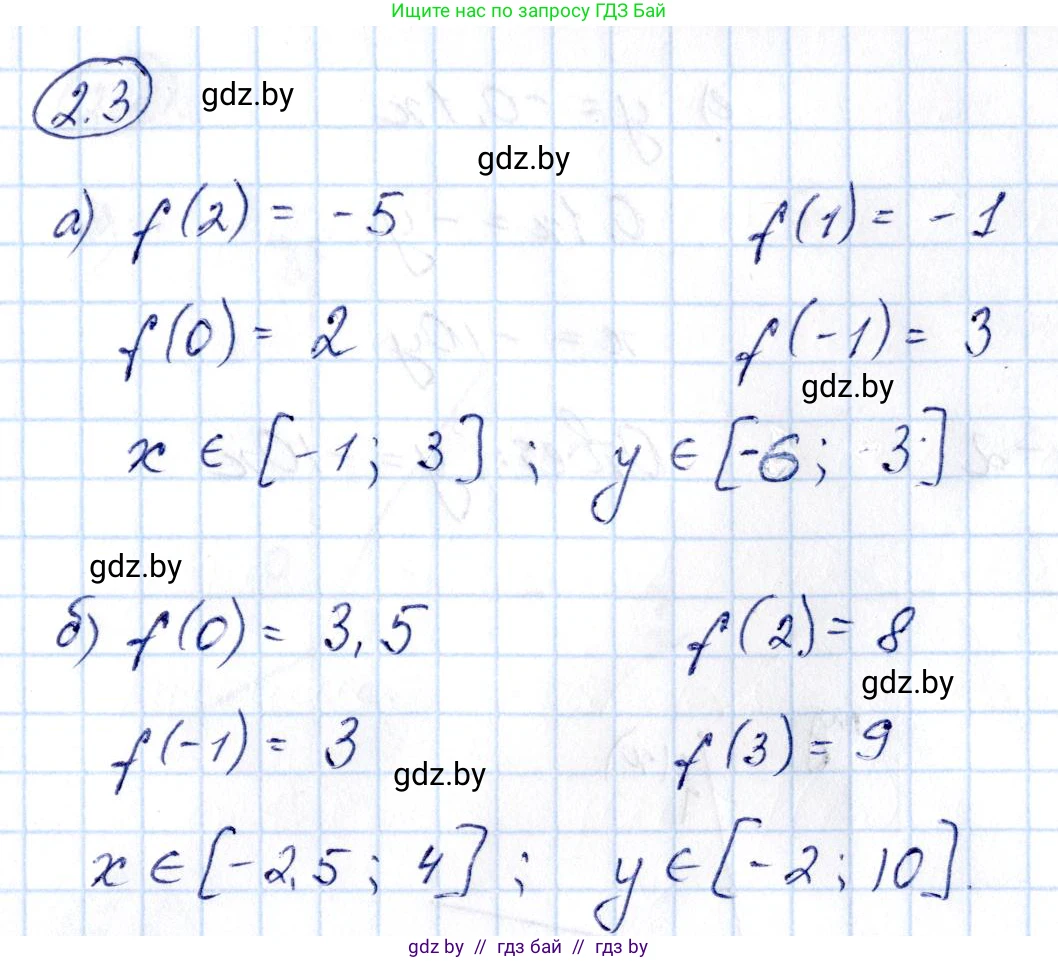 Ищите нас по запросу ГДЗ Бай
2.3 gdz.by
gdz.by
а) f(2) = -5 f(1) = -1
f(0) = 2 f(-1) = 3
gdz.by
x ∈ [-1; 3]; y ∈ [-6; 3]
gdz.by
б) f(0) = 3,5 f(2) = 8
gdz.by
f(-1) = 3 f(3) = 9
gdz.by
x ∈ [-2,5; 4]; y ∈ [-2; 10].
gdz.by // гдз бай // гдз by